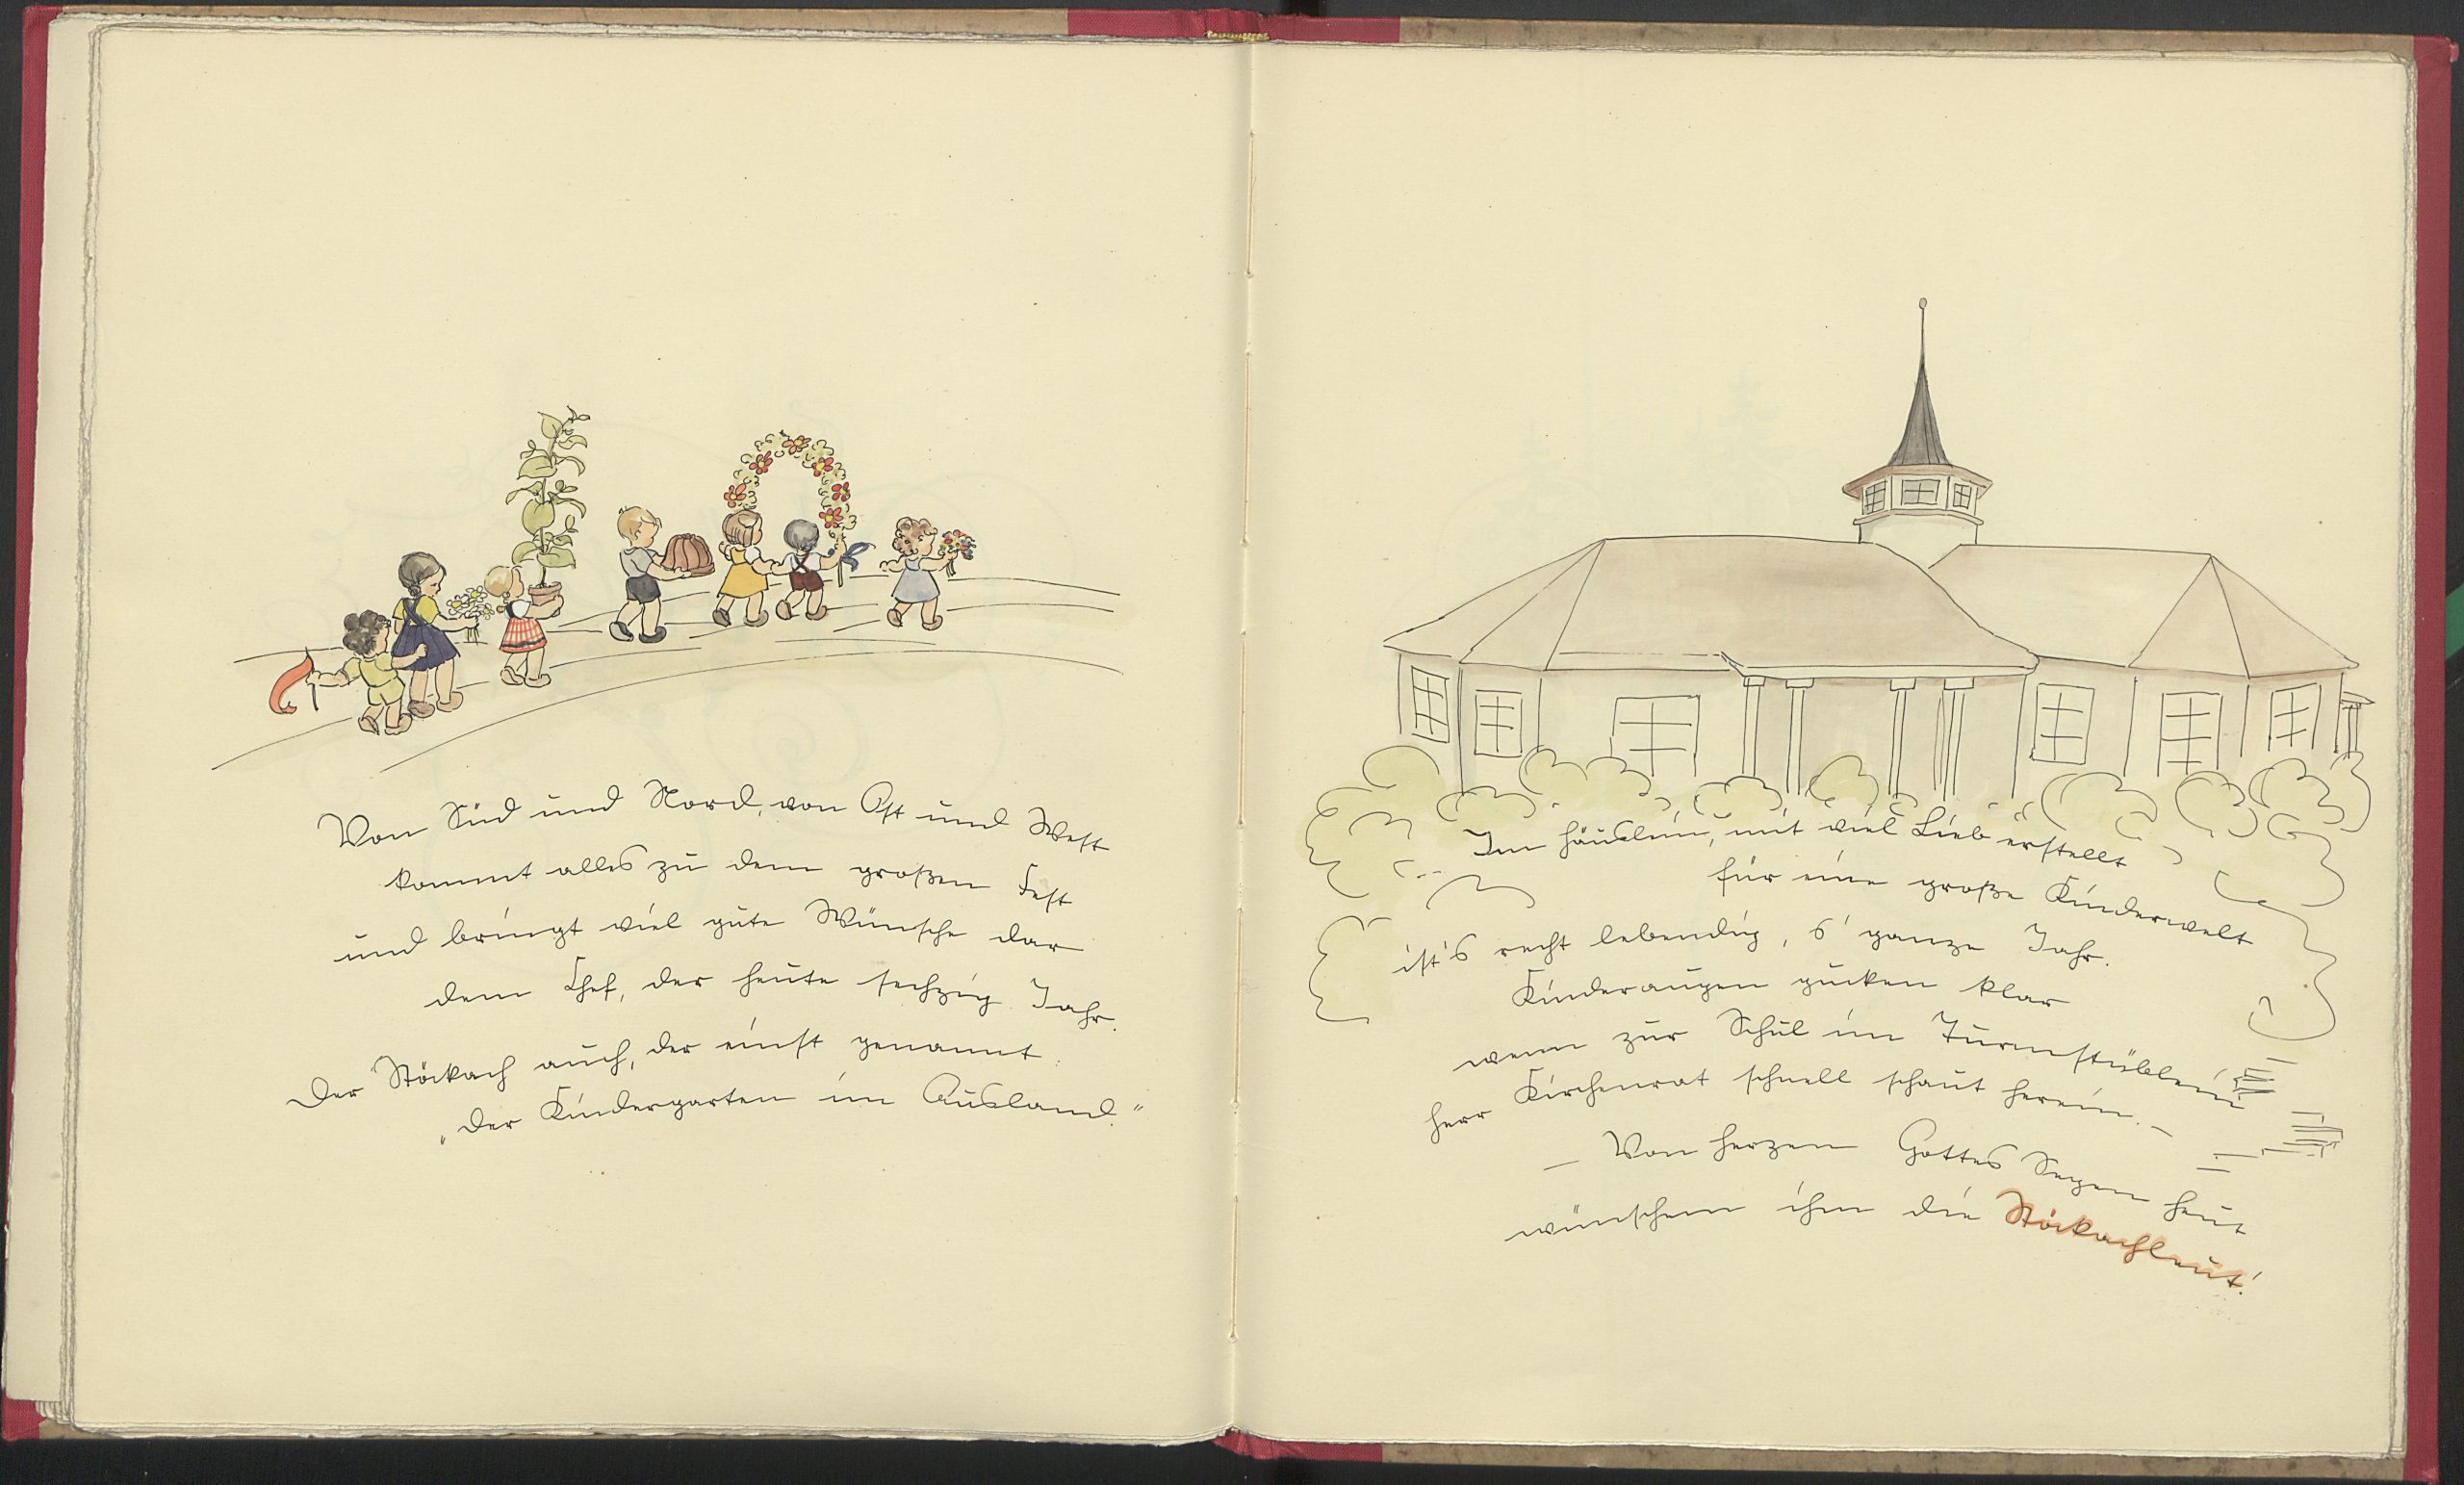 Von Süd und Nord, von Ost und West
kommt alles zu dem großen Fest
und bringt viel gute Wünsche dar
dem Chef, der heute sechzig Jahr.
Der Stöckach auch, der einst genannt:
„Der Kindergarten im Ausland."
Im Häuslein, mit viel Lieb erstellt
für eine große Kinderwelt
ist's recht lebendig, s' ganze Jahr.
Kinderaugen gucken klar
wenn zur Schul im Turmstüblein
Herr Kirchenrat schnell schaut herein. –
– Von Herzen Gottes Segen heut
wünschen ihm die Stöckachleut!